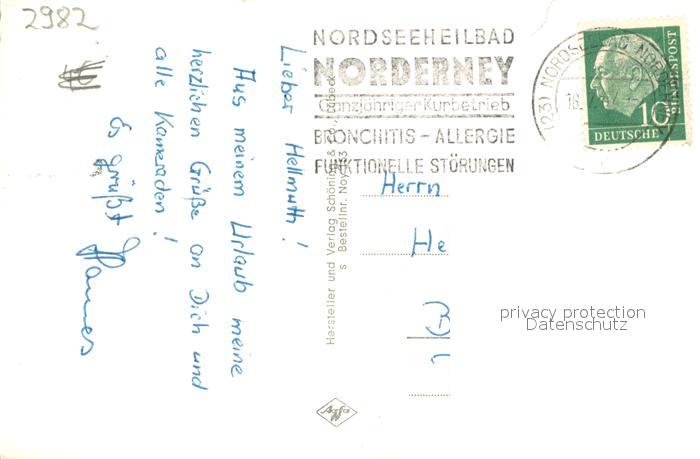 2982
NORDSEEHEILBAD
NORDERNEY
Ganzjähriger Kurbetrieb
BRONCHITIS – ALLERGIE
FUNKTIONELLE STÖRUNGEN
(23) NORDSEEBAD NOR
18.
10
DEUTSCHE
BUNDESPOST
Lieber Hellmuth!
Aus meinem Urlaub meine
herzlichen Grüße an Dich und
alle Kameraden!
Es grüßt
Hannes
Hersteller und Verlag Schöning & Co., Lübeck
s Bestellnr. Noy
Herrn
He
Agfa
privacy protection
Datenschutz